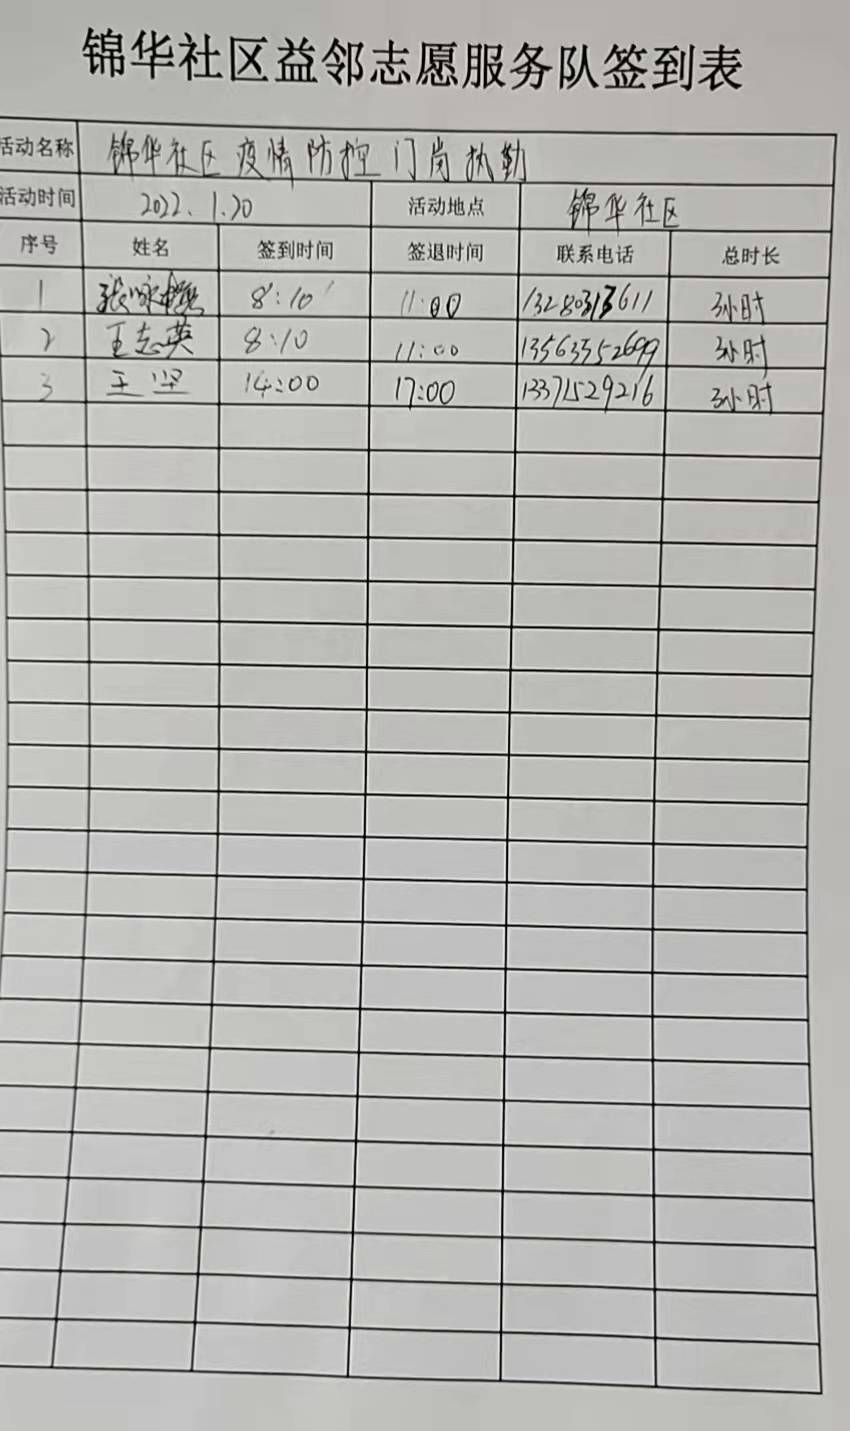 锦华社区益邻志愿服务队签到表
活动名称 锦华社区疫情防控门岗执勤
活动时间 2022.1.20 活动地点 锦华社区
序号 姓名 签到时间 签退时间 联系电话 总时长
1 张 8:10 11:00 13280313611 3小时
2 王志英 8:10 11:00 13563552699 3小时
3 王坚 14:00 17:00 13371529216 3小时